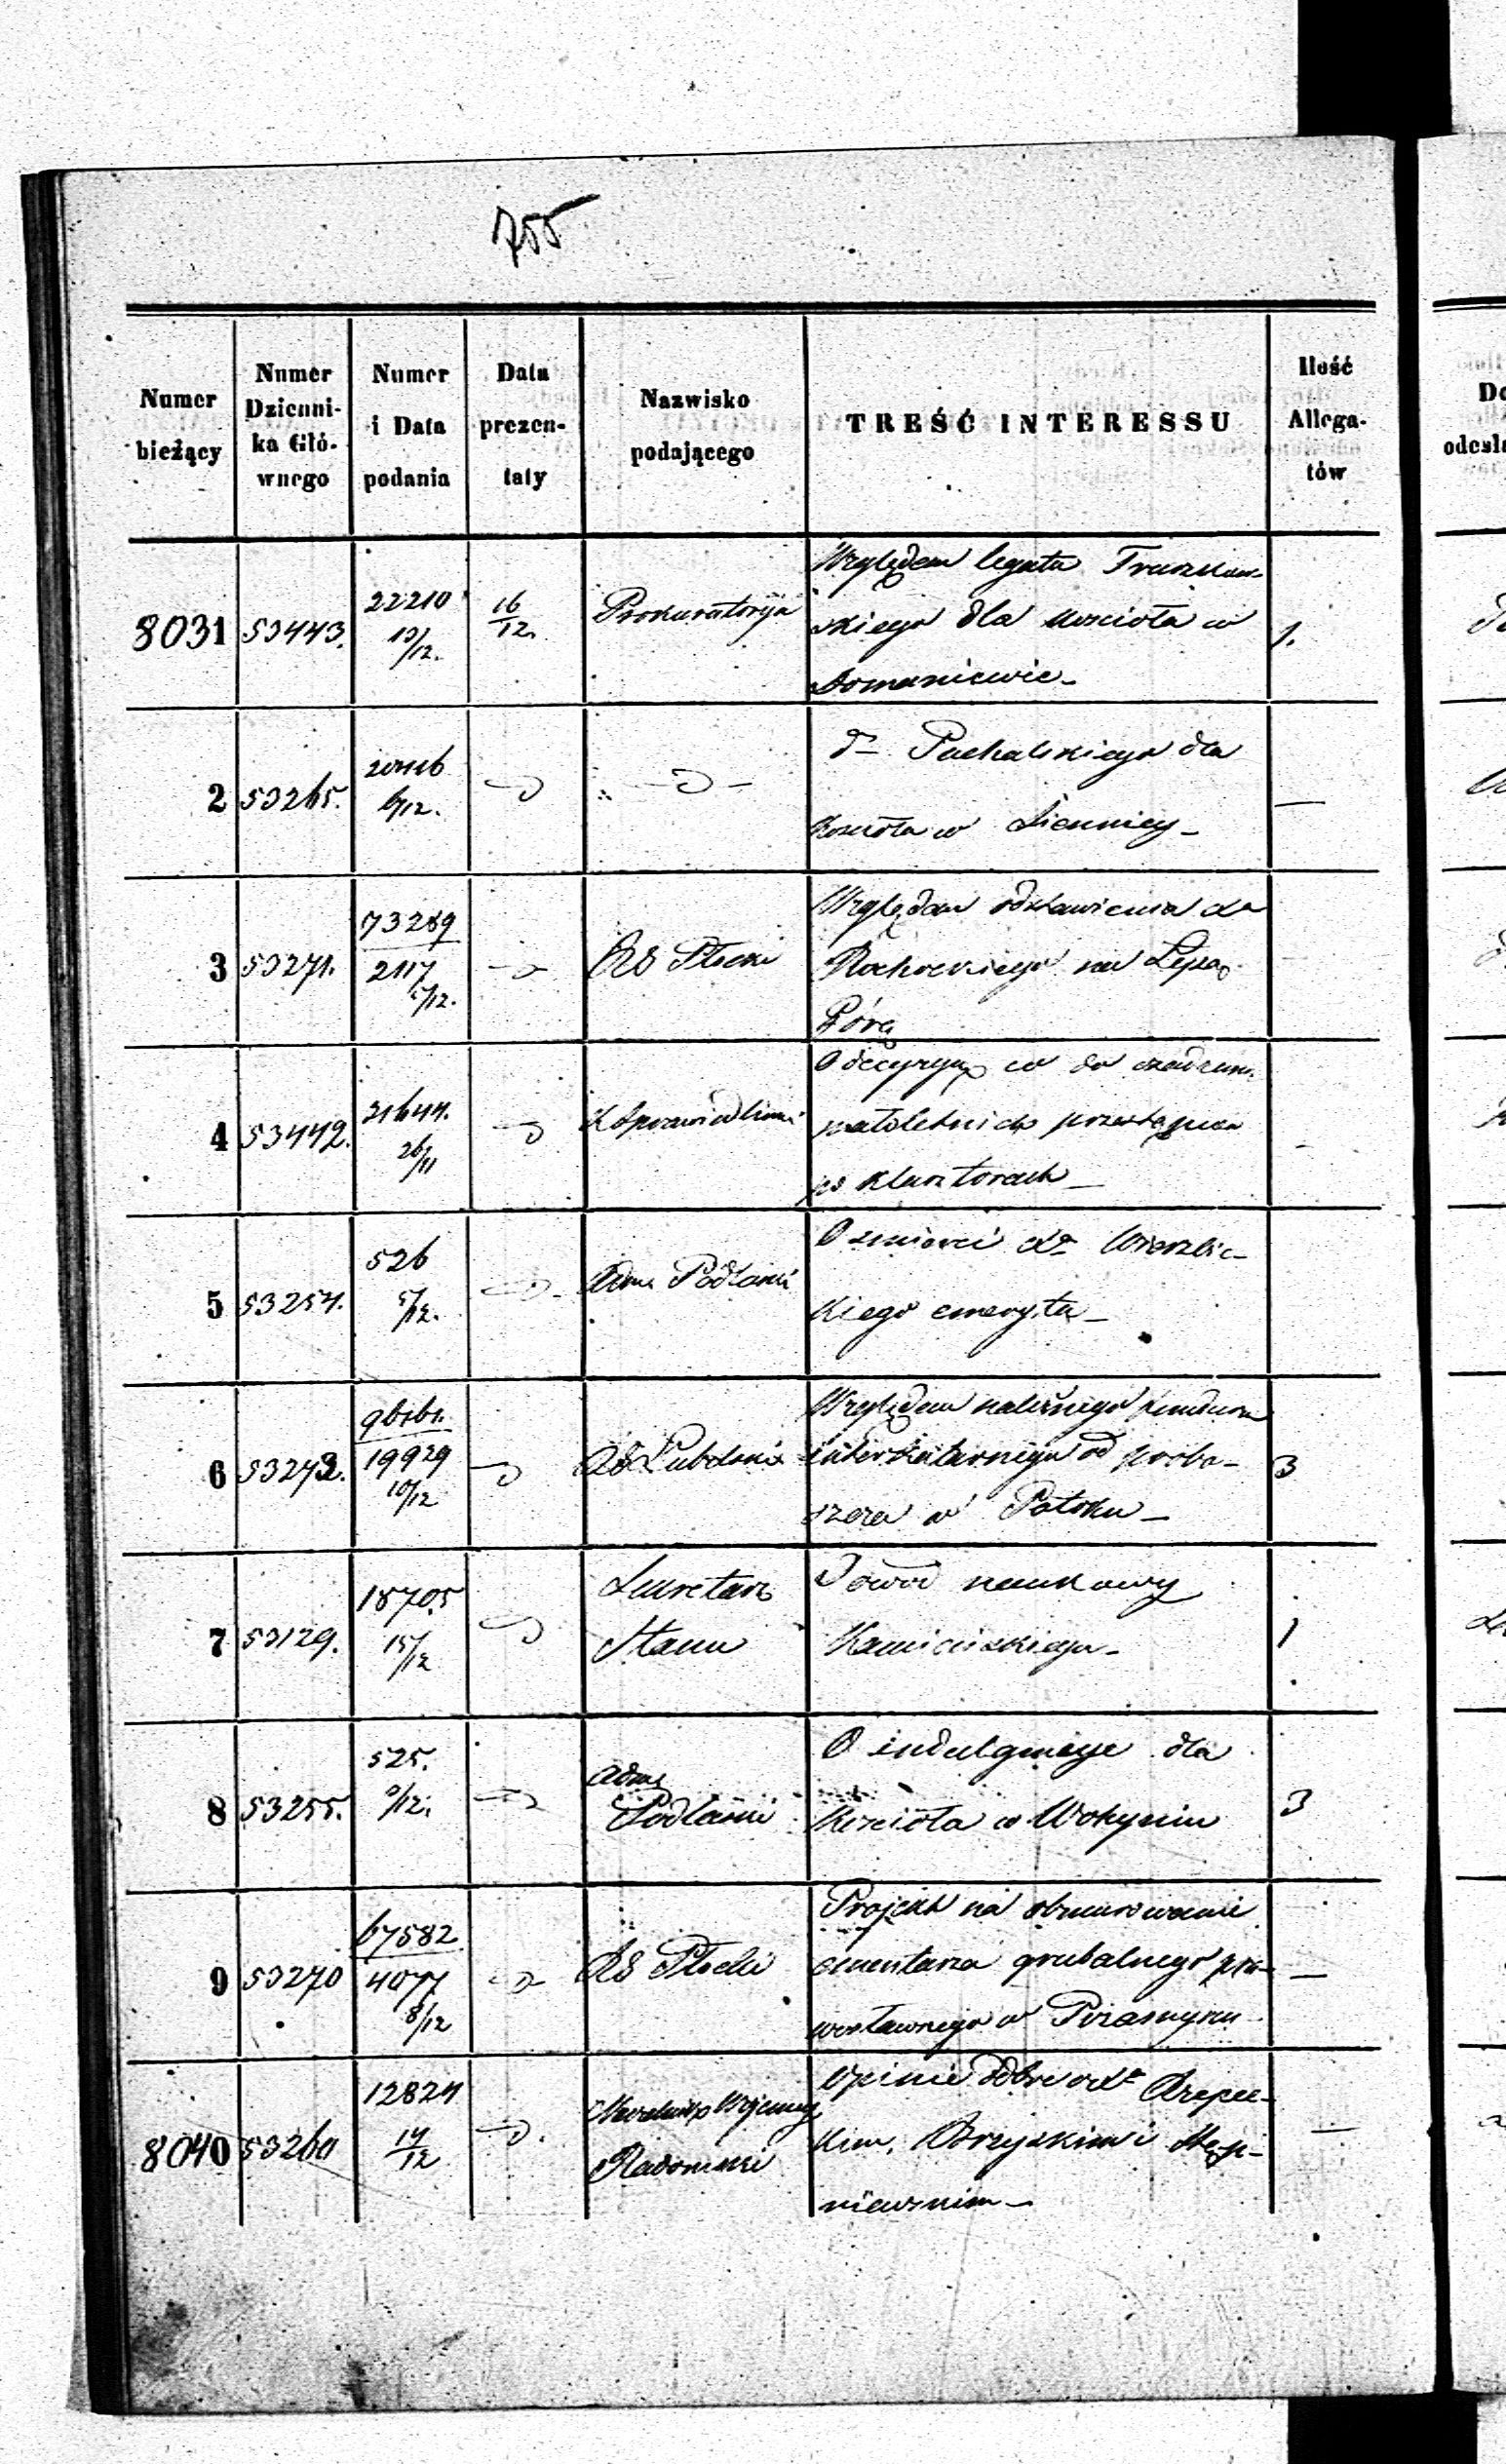 755
Numer bieżący
Numer Dzienni-
ka Głó-
wnego
Numer i Data podania
Data prezen-
taty
Nazwisko podającego
TREŚĆ INTERESSU
Ilość Allega-
tów
8031 53443. 22210 13/12. 16/12. Prokuratorija
Względem legatu Truszkow-
skiego dla kościoła w
Domaniewic
1.
2 53265. 6/12.
dº Puchalskiego dla
kościoła w Siennicy
—
3 53271. 73289
2117
/12.
RG Płocki
Względem odstawienia Xa
Rochockiego na Łysą
Górę
4 53442. 21644. 26/11 K Sprawiedliwości
O decyzyą co do osadzania
małoletnich przestępców
po klasztorach
5 53254. 526 5/12. Adm. Podlaski
O śmierci Xa Wierzbic-
kiego emeryta
6 53273.
19929
10/12
RG Lubelski
Względem należnego funduszu
interkalarnego od probo-
szcza w Potoku
3
7 53129. 18705 15/12
Sekretarz
Stanu
Dowód naukowy
Kamieńskiego
1
8 53255. 525. 9/12.
Adm.
Podlaski
O indulgencye dla
kościoła w Wohyniu
3
9 53270 67582
4077
8/12
RG Płocki
Projekt na obmurowanie
cmentarza grzebalnego pra-
wosławnego w Przasnyszu
—
8040 53260 12824 14/12
Naczelnik Wojenny
Radomski
Opinie dobre o Xa Rzepec-
kim, Borzyskim i Stęp-
niewskim
—
De
odesła